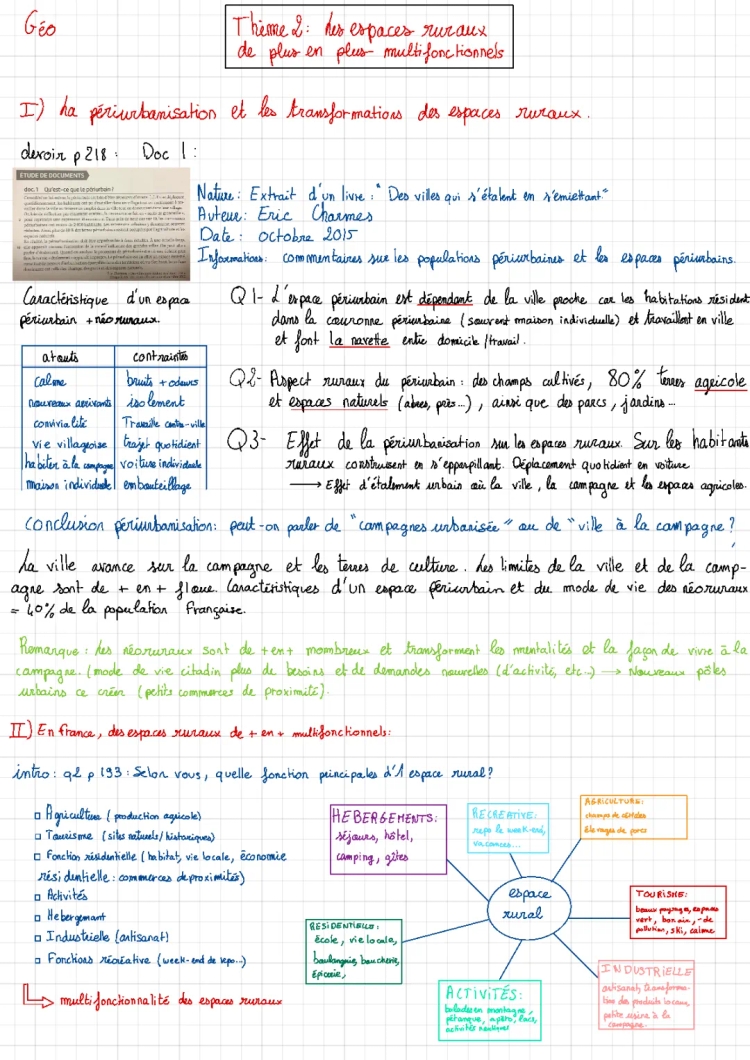 Géo
Thème 2: Les espaces ruraux
de plus en plus multifonctionnels
I) La périurbanisation et les transformations des espaces ruraux.
devoir p218: Doc 1:
ÉTUDE DE DOCUMENTS
doc.1 Qu'est-ce que le périurbain ?
Nature: Extrait d'un livre: "Des villes qui s'étalent en s'émiettant"
Auteur: Eric Charmes
Date: octobre 2015
Informations: commentaires sur les populations périurbaines et les espaces périurbains.
Caractéristique d'un espace
périurbain + néoruraux.
atouts contraintes
calme bruits + odeurs
nouveaux arrivants isolement
convivialité Travaille centre-ville
vie villageoise trajet quotidient
habiter à la campagne voiture individuele
maison individuele embouteillage
Q1- L'espace périurbain est dépendant de la ville proche car les habitations résident
dans la couronne périurbaine (souvent maison individuelle) et travaillent en ville
et font la navette entre domicile/travail.
Q2- Aspect ruraux du périurbain: des champs cultivés, 80% terres agricole
et espaces naturels (abres, près...), ainsi que des parcs, jardins...
Q3- Effet de la périurbanisation sur les espaces ruraux. Sur les habitants
ruraux construisent en s'epperpillant. Déplacement quotidient en voiture
→ Effet d'étalement urbain où la ville, la campagne et les espaces agricoles.
Conclusion périurbanisation: peut-on parler de "campagnes urbanisée" ou de "ville à la campagne?
La ville avance sur la campagne et les terres de culture. Les limites de la ville et de la camp-
agne sont de + en + floue. Caractéristiques d'un espace périurbain et du mode de vie des néoruraux
= 40% de la population française.
Remarque: Les néoruraux sont de + en + nombreux et transforment les mentalités et la façon de vivre à la
campagne. (mode de vie citadin plus de besoins et de demandes nouvelles (d'activité, etc...) → Nouveaux pôles
urbains ce créer (petits commerces de proximité).
II) En france, des espaces ruraux de + en + multifonctionnels:
intro: q2 p 193: Selon vous, quelle fonction principales d'1 espace rural?
Agriculture (production agricole)
Tourisme (sites naturels/historiques)
Fonction résidentielle (habitat, vie locale, économie
résidentielle: commerces de proximités)
Activités
Hebergement
Industrielle (artisanat)
Fonctions récréative (week-end de repo...)
multifonctionnalité des espaces ruraux
HEBERGEMENTS:
séjours, hôtel,
camping, gîtes
RECREATIVE:
repo le week-end,
vacances...
AGRICULTURE:
champs de céréales
élevages de porcs
espace
rural
TOURISME:
beaux paysages, espaces
vert, bon air, - de
pollution, ski, calme
RESIDENTIELLE:
école, vie locale,
boulangerie, boucherie,
épicerie,
ACTIVITÉS:
balades en montagne,
pétanque, apéro, lacs,
activités nautiques
INDUSTRIELLE
artisanat, transforma-
tion de produits locaux,
petite usine à la
campagne